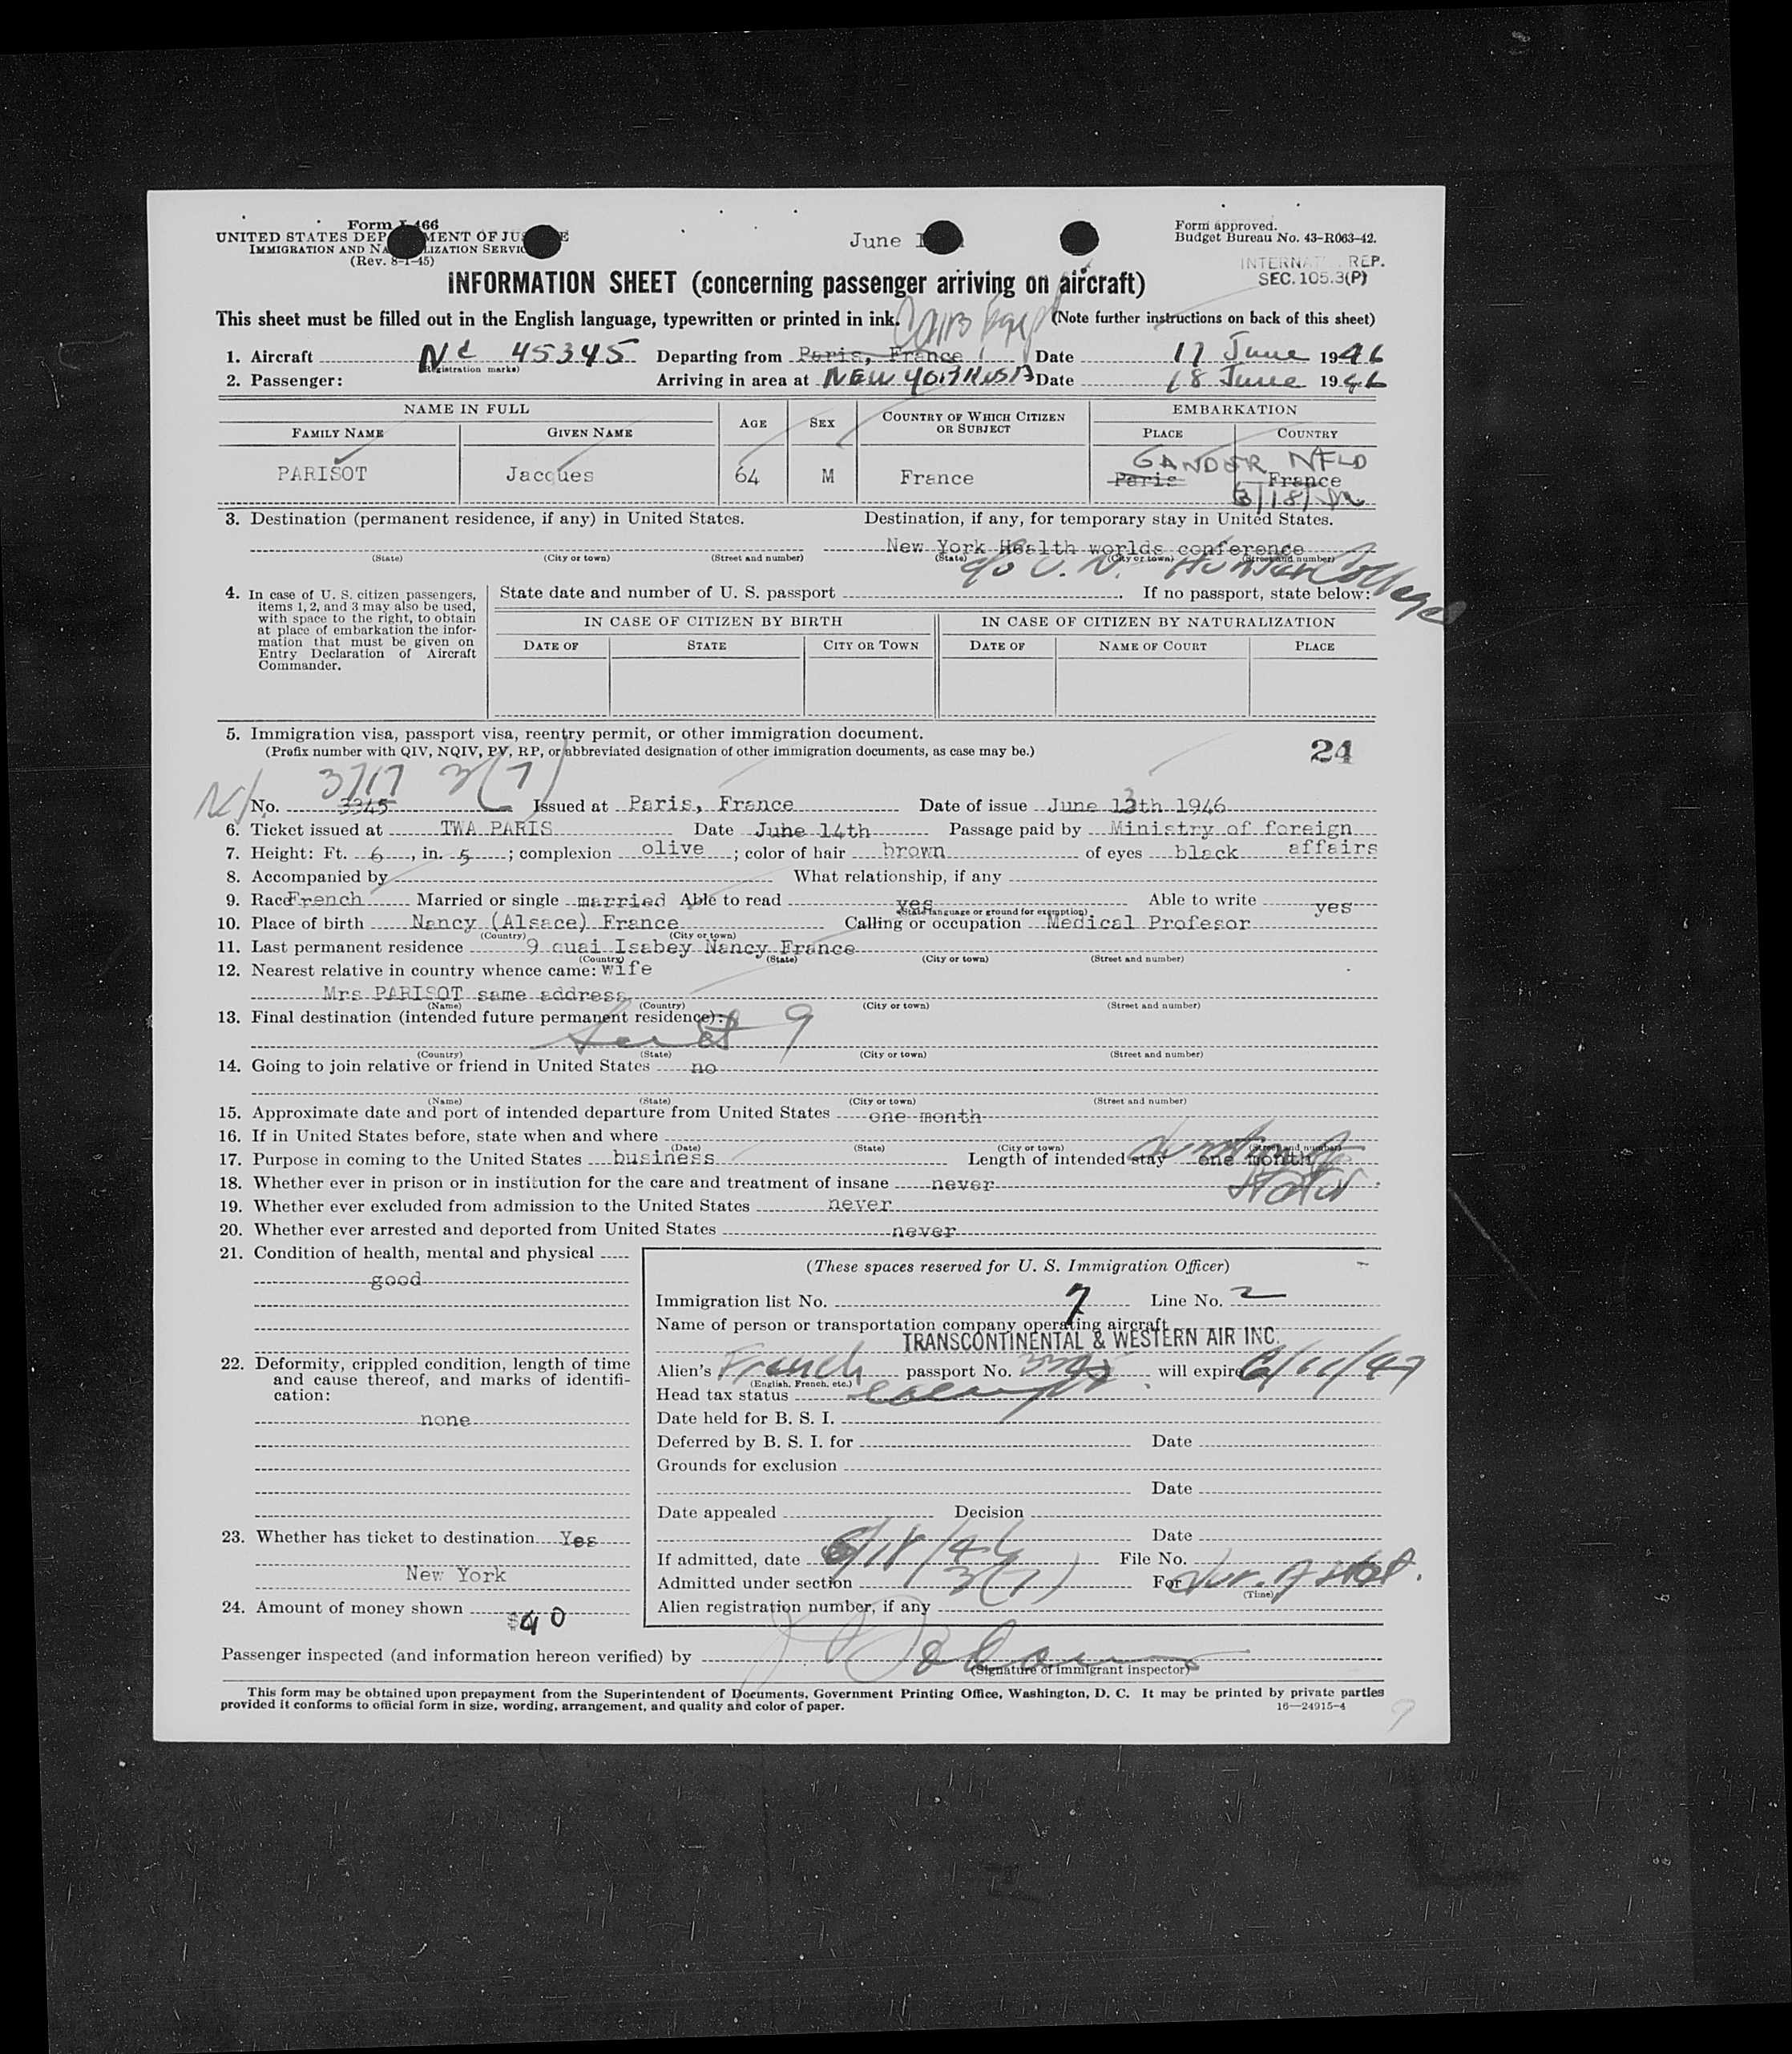 Form I-466
UNITED STATES DEPARTMENT OF JUSTICE
IMMIGRATION AND NATURALIZATION SERVICE
(Rev. 8-1-45)
June
Form approved.
Budget Bureau No. 43-R063-42.
REP.
SEC. 105.3(P)
INFORMATION SHEET (concerning passenger arriving on aircraft)
This sheet must be filled out in the English language, typewritten or printed in ink. (Note further instructions on back of this sheet)
Cairo Egypt
1. Aircraft NC 45345 Departing from Paris, France Date 17 June 1946
(Registration marks)
2. Passenger: Arriving in area at NEW YORK USA Date 18 June 1946
NAME IN FULL AGE SEX COUNTRY OF WHICH CITIZEN OR SUBJECT EMBARKATION
FAMILY NAME GIVEN NAME PLACE COUNTRY
GANDER NFLD
PARISOT Jacques 64 M France Paris France
6/18/
3. Destination (permanent residence, if any) in United States. Destination, if any, for temporary stay in United States.
New York Health worlds conference
(State) (City or town) (Street and number) (State) (City or town) (Street and number)
c/o U. N. Hunter College
4. In case of U. S. citizen passengers, items 1, 2, and 3 may also be used, with space to the right, to obtain at place of embarkation the information that must be given on Entry Declaration of Aircraft Commander.
State date and number of U. S. passport If no passport, state below:
IN CASE OF CITIZEN BY BIRTH IN CASE OF CITIZEN BY NATURALIZATION
DATE OF STATE CITY OR TOWN DATE OF NAME OF COURT PLACE
5. Immigration visa, passport visa, reentry permit, or other immigration document.
(Prefix number with QIV, NQIV, PV, RP, or abbreviated designation of other immigration documents, as case may be.)
24
3717 3(7)
No. 3345 Issued at Paris, France Date of issue June 13th 1946
6. Ticket issued at TWA PARIS Date June 14th Passage paid by Ministry of foreign affairs
7. Height: Ft. 6, in. 5; complexion olive; color of hair brown of eyes black
8. Accompanied by What relationship, if any
9. Race French Married or single married Able to read yes Able to write yes
(State language or ground for exemption)
10. Place of birth Nancy (Alsace) France Calling or occupation Medical Profesor
(Country) (City or town)
11. Last permanent residence 9 quai Isabey Nancy France
(Country) (State) (City or town) (Street and number)
12. Nearest relative in country whence came: wife
Mrs PARISOT same address
(Name) (Country) (City or town) (Street and number)
13. Final destination (intended future permanent residence):
9
(Country) (State) (City or town) (Street and number)
14. Going to join relative or friend in United States no
(Name) (State) (City or town) (Street and number)
15. Approximate date and port of intended departure from United States one month
16. If in United States before, state when and where
(Date) (State) (City or town) (Street and number)
17. Purpose in coming to the United States business Length of intended stay one month
18. Whether ever in prison or in institution for the care and treatment of insane never
19. Whether ever excluded from admission to the United States never
20. Whether ever arrested and deported from United States never
21. Condition of health, mental and physical
good
22. Deformity, crippled condition, length of time and cause thereof, and marks of identification:
none
23. Whether has ticket to destination Yes
New York
24. Amount of money shown $40
(These spaces reserved for U. S. Immigration Officer)
Immigration list No. 7 Line No. 2
Name of person or transportation company operating aircraft
TRANSCONTINENTAL & WESTERN AIR INC.
Alien's French passport No. 3345 will expire 6/11/47
(English, French, etc.)
Head tax status exempt
Date held for B. S. I.
Deferred by B. S. I. for Date
Grounds for exclusion
Date
Date appealed Decision
Date
If admitted, date 6/18/46 File No.
Admitted under section 3(7) For Dur. of stat.
(Time)
Alien registration number, if any
Passenger inspected (and information hereon verified) by
(Signature of immigrant inspector)
This form may be obtained upon prepayment from the Superintendent of Documents, Government Printing Office, Washington, D. C. It may be printed by private parties
provided it conforms to official form in size, wording, arrangement, and quality and color of paper. 16—24915-4